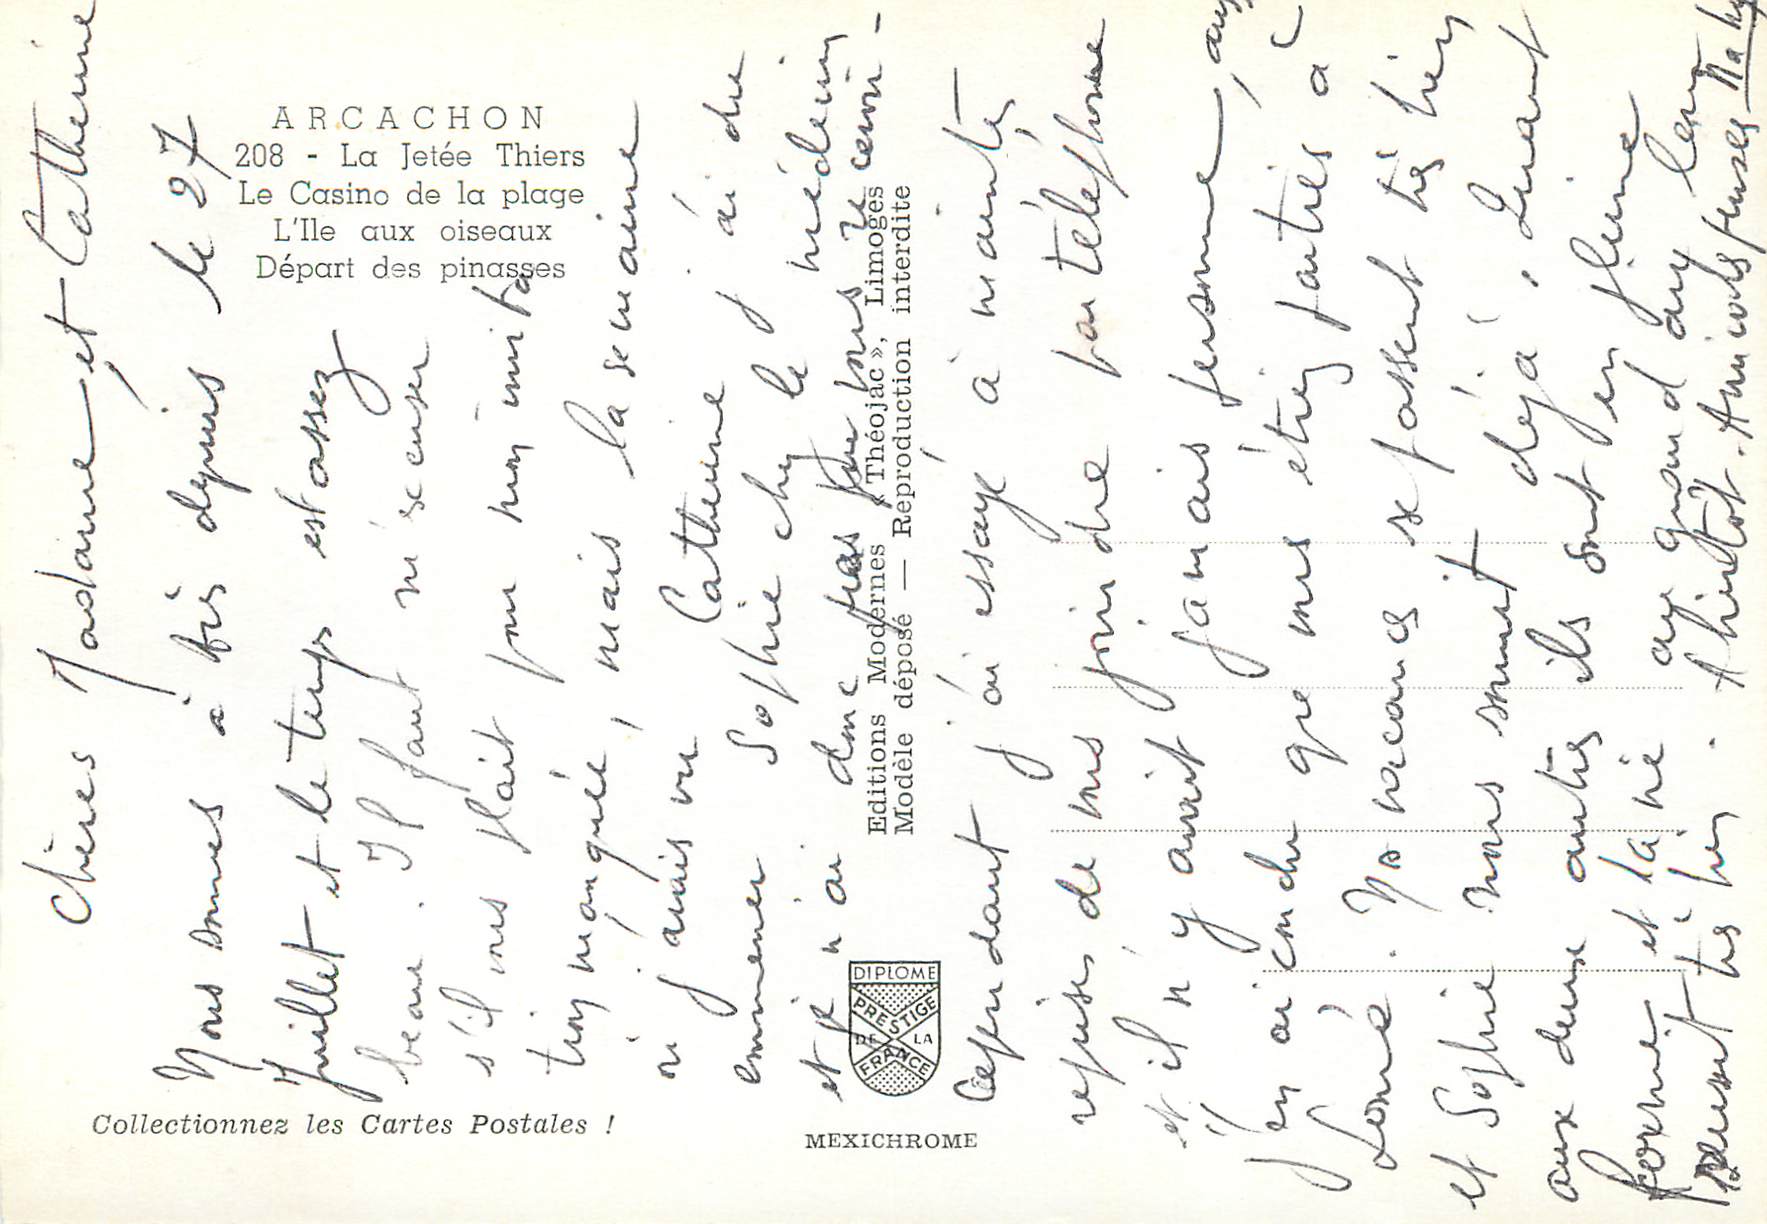 ARCACHON
208 - La Jetée Thiers
Le Casino de la plage
L'Ile aux oiseaux
Départ des pinasses
Collectionnez les Cartes Postales !
Editions Modernes « Théojac », Limoges
Modèle déposé — Reproduction interdite
DIPLOME
PRESTIGE
DE LA
FRANCE
MEXICHROME
Chères Madame et Catherine
Nous sommes à depuis le 27
Juillet et le temps est assez
beau. Il faut m'excuser
s'il vous plait pour mon invita
tion manquée, mais la semaine
où j'avais vu Catherine j'ai du
emmener Sophie chez le médecin
et je n'ai donc pas pu vous recevoir -
Cependant j'ai essayé à maintes
reprises de vous joindre par téléphone
et il n'y avait jamais personne,
J'en ai conclu que vous étiez parties à
Lomé. Nos vacances se passent très bien
et Sophie nous sourit déjà. Quant
aux deux autres ils sont en pleine
forme et la vie au grand air leur
très bien. A bientôt. Amicales pensées